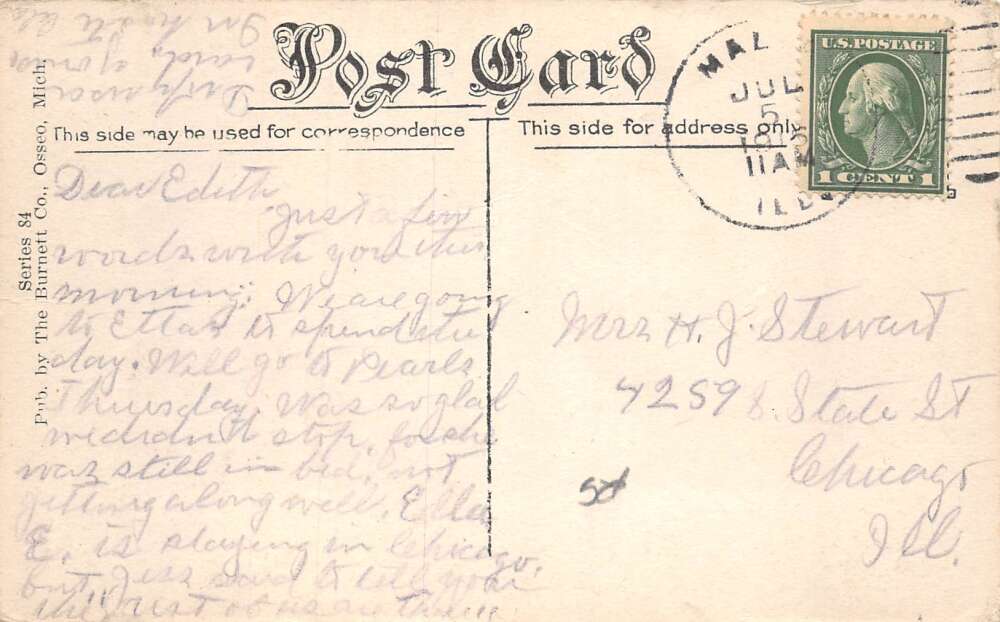 Post Card
This side may be used for correspondence
This side for address only
MAL
JUL
5
11 AM
ILL.
U.S. POSTAGE
1 CENT 1
Series 84
Pub. by The Burnett Co., Osseo, Mich.
Dear Edith
Just a few
words with you this
morning. We are going
to Ellas to spend the
day. Will go to Pearls
Thursday. Was so glad
we didn't stop, for she
was still in bed, not
getting along well. Ella
E. is staying in Chicago,
but Jess said to tell you
the rest of us are
Mrs H. J. Stewart
4259 S. State St
Chicago
Ill.